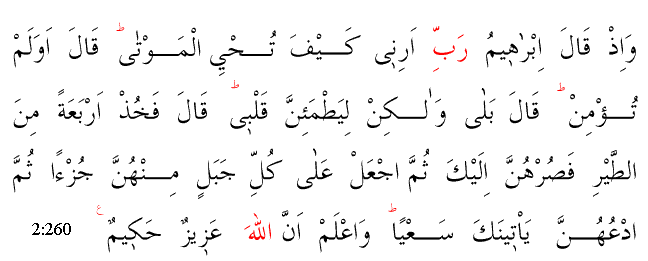 وَاِذْ قَالَ اِبْرٰهٖيمُ رَبِّ اَرِنٖى كَيْفَ تُحْيِ الْمَوْتٰىؕ قَالَ اَوَلَمْ
تُؤْمِنْؕ قَالَ بَلٰى وَلٰكِنْ لِيَطْمَئِنَّ قَلْبٖىؕ قَالَ فَخُذْ اَرْبَعَةً مِنَ
الطَّيْرِ فَصُرْهُنَّ اِلَيْكَ ثُمَّ اجْعَلْ عَلٰى كُلِّ جَبَلٍ مِنْهُنَّ جُزْءًا ثُمَّ
ادْعُهُنَّ يَاْتٖينَكَ سَعْيًاؕ وَاعْلَمْ اَنَّ اللّٰهَ عَزٖيزٌ حَكٖيمٌ ࣖ 2:260